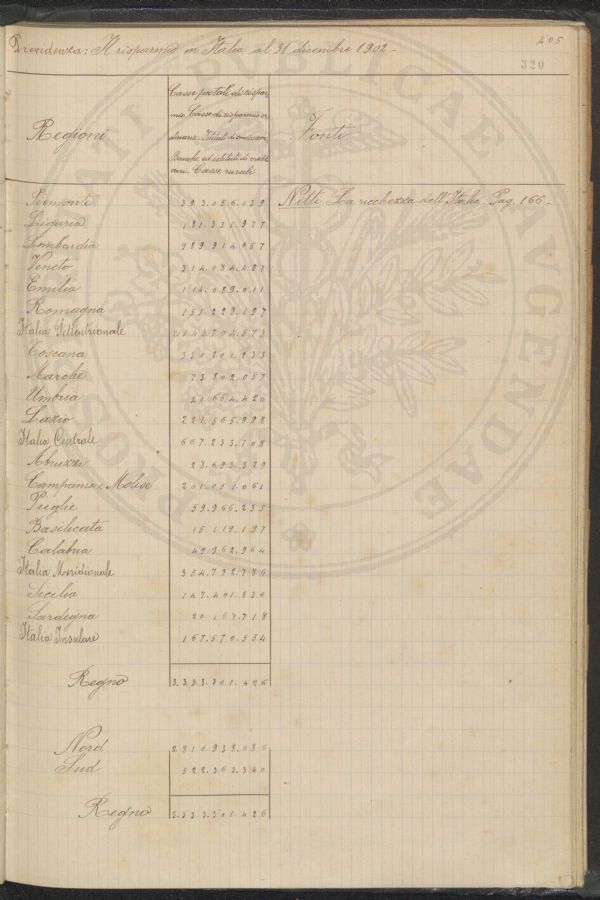 405
320
Previdenza: Il risparmio in Italia al 31 dicembre 1902 -
Regioni
Casse postali di rispar
mio. Casse di risparmio or
dinarie. Istituti di emissione
Banche ed istituti di credi
to. Casse rurali
Fonti
Piemonte 393.056.059 Nitti. La ricchezza dell'Italia. Pag. 166 -
Liguria
Lombardia 989.914.057
Veneto
Emilia 114.089.011
Romagna 151.228.197
Italia Settentrionale 2.143.704.378
Toscana 330.201.233
Marche 73.802.057
Umbria 41.664.420
Lazio 221.565.998
Italia Centrale 667.233.708
Abruzzi 28.693.329
Campania e Molise 201.051.061
Puglie 59.966.235
Basilicata 15.119.197
Calabria 49.962.964
Italia Meridionale 354.792.786
Sicilia 147.401.836
Sardegna 20.168.718
Italia Insulare 167.570.554
Regno 3.333.301.426
Nord 2.810.938.086
Sud 522.363.340
Regno 3.333.301.426